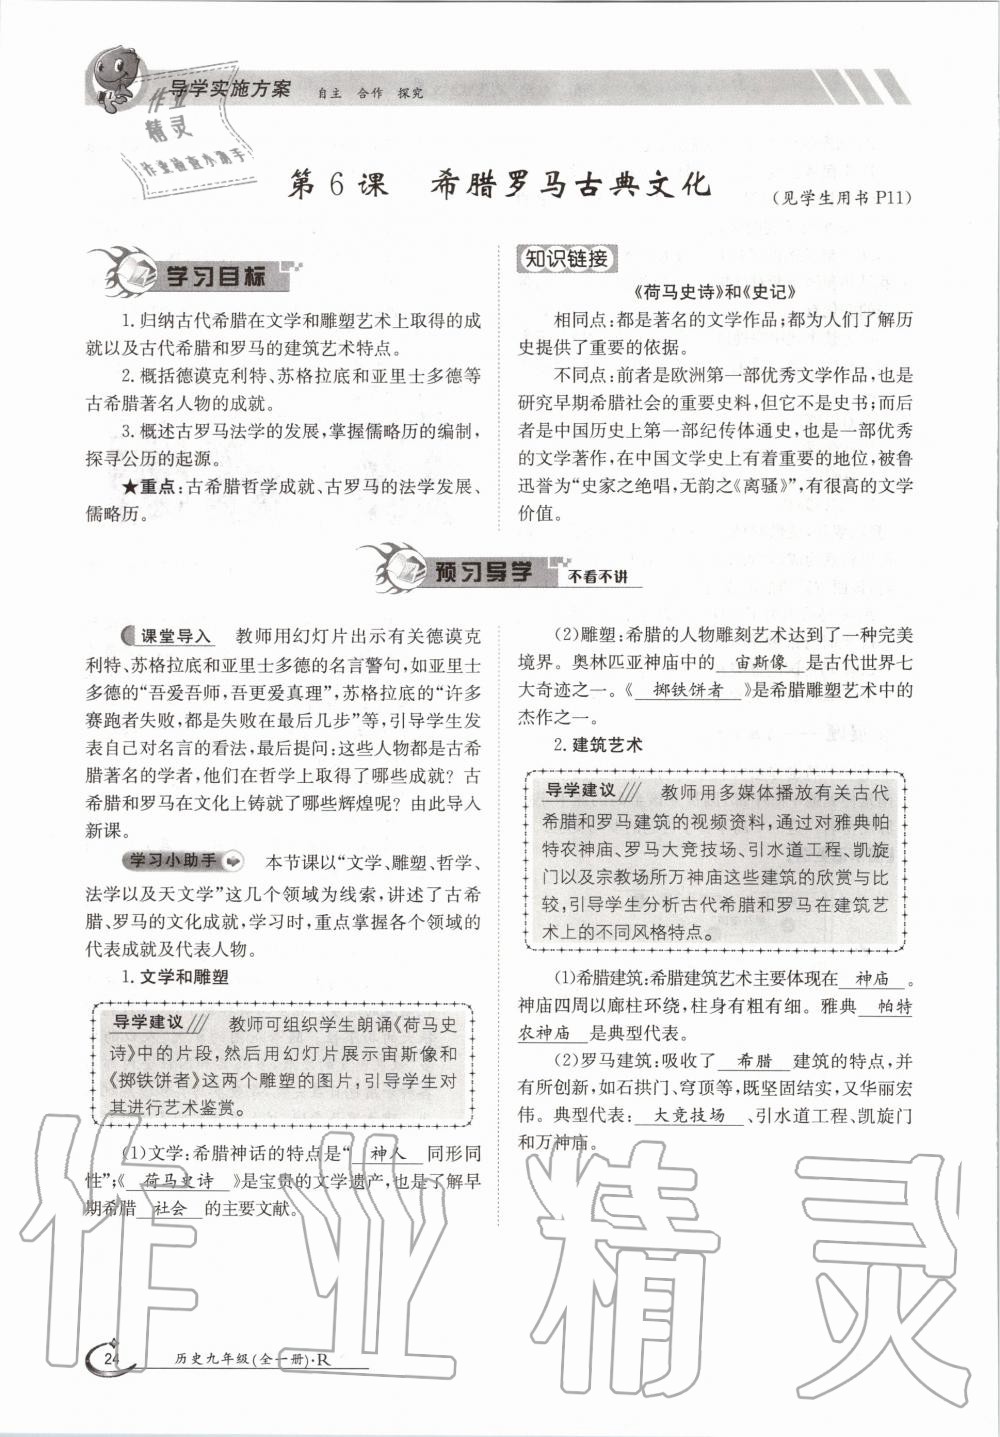 导学实施方案 自主 合作 探究
作业
精灵
作业检查小助手
第6课 希腊罗马古典文化
(见学生用书 P11)
学习目标
1.归纳古代希腊在文学和雕塑艺术上取得的成
就以及古代希腊和罗马的建筑艺术特点。
2.概括德谟克利特、苏格拉底和亚里士多德等
古希腊著名人物的成就。
3.概述古罗马法学的发展,掌握儒略历的编制,
探寻公历的起源。
★重点:古希腊哲学成就、古罗马的法学发展、
儒略历。
知识链接
《荷马史诗》和《史记》
相同点:都是著名的文学作品;都为人们了解历
史提供了重要的依据。
不同点:前者是欧洲第一部优秀文学作品,也是
研究早期希腊社会的重要史料,但它不是史书;而后
者是中国历史上第一部纪传体通史,也是一部优秀
的文学著作,在中国文学史上有着重要的地位,被鲁
迅誉为“史家之绝唱,无韵之《离骚》”,有很高的文学
价值。
预习导学 不看不讲
课堂导入 教师用幻灯片出示有关德谟克
利特、苏格拉底和亚里士多德的名言警句,如亚里士
多德的“吾爱吾师,吾更爱真理”,苏格拉底的“许多
赛跑者失败,都是失败在最后几步”等,引导学生发
表自己对名言的看法,最后提问:这些人物都是古希
腊著名的学者,他们在哲学上取得了哪些成就?古
希腊和罗马在文化上铸就了哪些辉煌呢?由此导入
新课。
学习小助手 本节课以“文学、雕塑、哲学、
法学以及天文学”这几个领域为线索,讲述了古希
腊、罗马的文化成就,学习时,重点掌握各个领域的
代表成就及代表人物。
1.文学和雕塑
导学建议 教师可组织学生朗诵《荷马史
诗》中的片段,然后用幻灯片展示宙斯像和
《掷铁饼者》这两个雕塑的图片,引导学生对
其进行艺术鉴赏。
(1)文学:希腊神话的特点是“ 神人 同形同
性”;《 荷马史诗 》是宝贵的文学遗产,也是了解早
期希腊 社会 的主要文献。
(2)雕塑:希腊的人物雕刻艺术达到了一种完美
境界。奥林匹亚神庙中的 宙斯像 是古代世界七
大奇迹之一。《 掷铁饼者 》是希腊雕塑艺术中的
杰作之一。
2.建筑艺术
导学建议 教师用多媒体播放有关古代
希腊和罗马建筑的视频资料,通过对雅典帕
特农神庙、罗马大竞技场、引水道工程、凯旋
门以及宗教场所万神庙这些建筑的欣赏与比
较,引导学生分析古代希腊和罗马在建筑艺
术上的不同风格特点。
(1)希腊建筑:希腊建筑艺术主要体现在 神庙 。
神庙四周以廊柱环绕,柱身有粗有细。雅典 帕特
农神庙 是典型代表。
(2)罗马建筑:吸收了 希腊 建筑的特点,并
有所创新,如石拱门、穹顶等,既坚固结实,又华丽宏
伟。典型代表: 大竞技场 、引水道工程、凯旋门
和万神庙。
作业精灵
24 历史九年级(全一册)·R